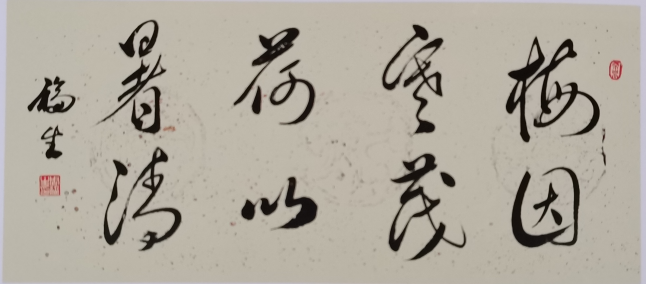 梅因
寒茂
荷以
暑清
福生